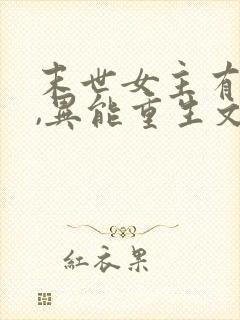 末世女主有
,異能重生文
紅衣果